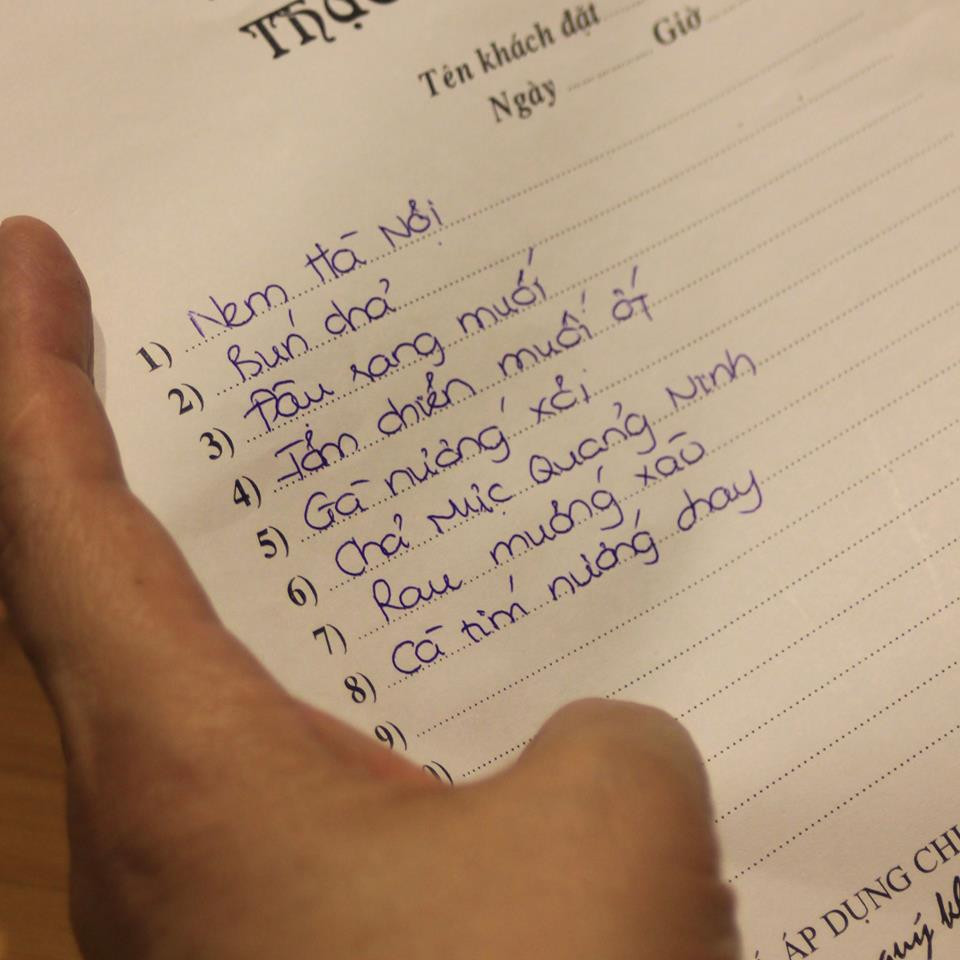 Tên khách đặt
Ngày Giờ
1) Nem Hà Nội
2) Bún chả
3) Đậu rang muối
4) Tôm chiên muối ớt
5) Gà nướng xả
6) Chả Mực Quảng Ninh
7) Rau muống xào
8) Cà tím nướng chay
9)
ÁP DỤNG
quý